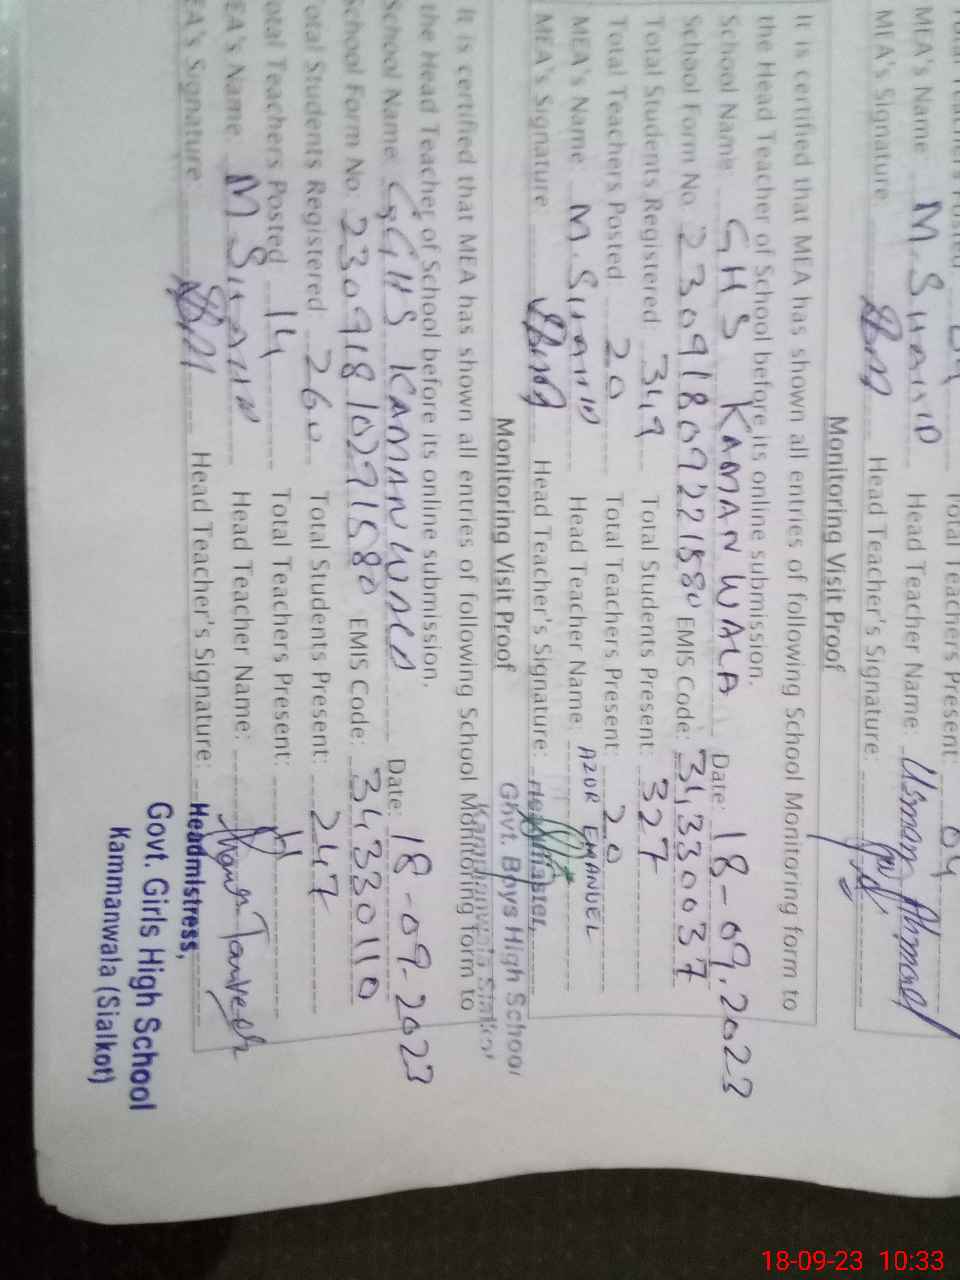 MEA's Name: M. SHAHID Head Teacher Name: Usman Ahmad
MEA's Signature: Head Teacher's Signature:
Monitoring Visit Proof
It is certified that MEA has shown all entries of following School Monitoring form to
the Head Teacher of School before its online submission.
School Name: GHS KAMAN WALA Date: 18-09.2023
School Form No. 23091809221580 EMIS Code: 34330037
Total Students Registered: 349 Total Students Present: 327
Total Teachers Posted 20 Total Teachers Present: 20
MEA's Name: M. SHAHID Head Teacher Name: AZUR EMANUEL
MEA's Signature: Head Teacher's Signature:
Headmaster,
Govt. Boys High School
Kammanwala Sialkot
Monitoring Visit Proof
It is certified that MEA has shown all entries of following School Monitoring form to
the Head Teacher of School before its online submission.
School Name GGHS KAMANWALA Date: 18-09.2023
School Form No. 23091810291580 EMIS Code: 34330110
Total Students Registered 260 Total Students Present: 247
Total Teachers Posted 14 Total Teachers Present:
EA's Name M SHAHID Head Teacher Name:
EA's Signature Head Teacher's Signature:
Headmistress,
Govt. Girls High School
Kammanwala (Sialkot)
18-09-23 10:33